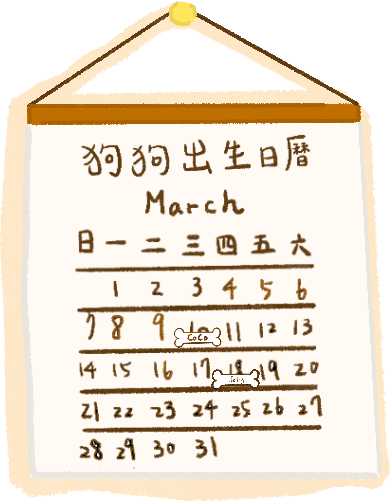 狗狗出生日曆
March
日 一 二 三 四 五 六
1 2 3 4 5 6
7 8 9 10 11 12 13
CoCo
14 15 16 17 18 19 20
21 22 23 24 25 26 27
28 29 30 31